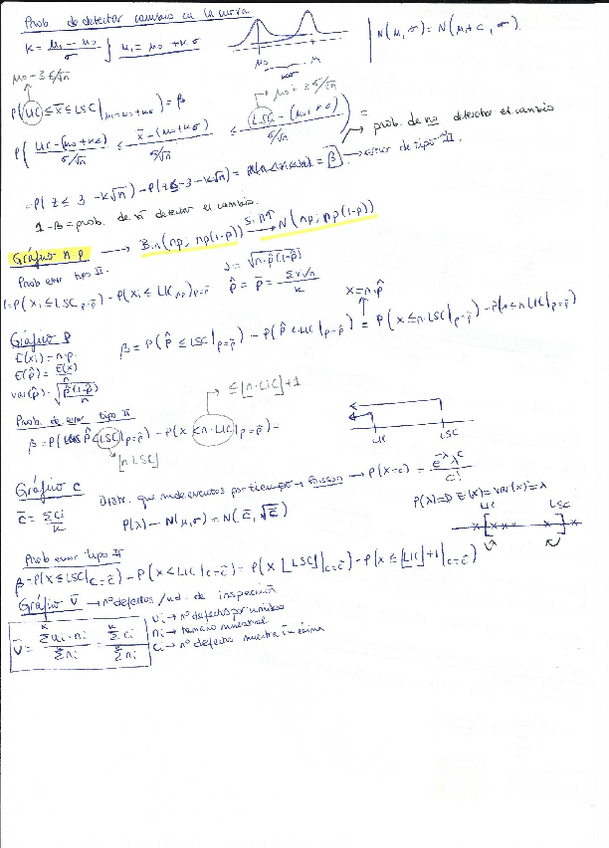 Prob de detectar cambio en la curva
K = μ₁ - μ₀ / σ } μ₁ = μ₀ + kσ
μ₀ μ₁
kσ
N(μ, σ) = N(μ + c, σ).
μ₀ - 3 σ/√n
μ₀ + 3 σ/√n
P(LIC ≤ x̄ ≤ LSC | μ = μ₀ + kσ) = β
P( LIC - (μ₀ + kσ) / σ/√n ≤ x̄ - (μ₀ + kσ) / σ/√n ≤ LSC - (μ₀ + kσ) / σ/√n ) =
prob. de no detectar el cambio
= P( z ≤ 3 - k√n) - P( z ≤ -3 - k√n) = β → error de tipo II.
1 - β = prob. de sí detectar el cambio.
Gráfico n p → Bin(np; np(1-p)) Si n↑ → N(np; np(1-p))
Prob error tipo II.
p̂ = p̄ = Σxi/n / k
x = n·p̂
Gráfico p
β = P(p̂ ≤ LSC | p=p̄) - P(p̂ < LIC | p=p̄) = P(x ≤ n·LSC | p=p̄) - P(x ≤ n LIC | p=p̄)
E(xi) = n·p.
E(p̂) = E(x) / n
var(p̂) = √ p̂(1-p̂) / n
≤ ⌊n·LIC⌋ + 1
Prob. de error tipo II
β = P(p̂ ≤ LSC | p=p̄) - P(x < n·LIC | p=p̄) =
⌊n LSC⌋
LIC LSC
Gráfico c
Distr. que mide eventos por tiempo → Poisson → P(x=c) = e^-λ λ^c / c!
c̄ = Σci / k
P(λ) → N(μ, σ) = N(c̄, √c̄)
P(λ) ⇒ E(x) = var(x) = λ
LIC LSC
Prob error tipo II
β = P(x ≤ LSC | c=c̄) - P(x < LIC | c=c̄) = P(x ⌊LSC⌋ | c=c̄) - P(x ≤ ⌊LIC⌋ + 1 | c=c̄)
Gráfico Ū → nº defectos / ud. de inspección
Ū = Σ ui·ni / Σ ni = Σ ci / Σ ni
Ui → nº defectos por unidad
ni → tamaño muestral
Ci → nº defectos muestra i-ésima